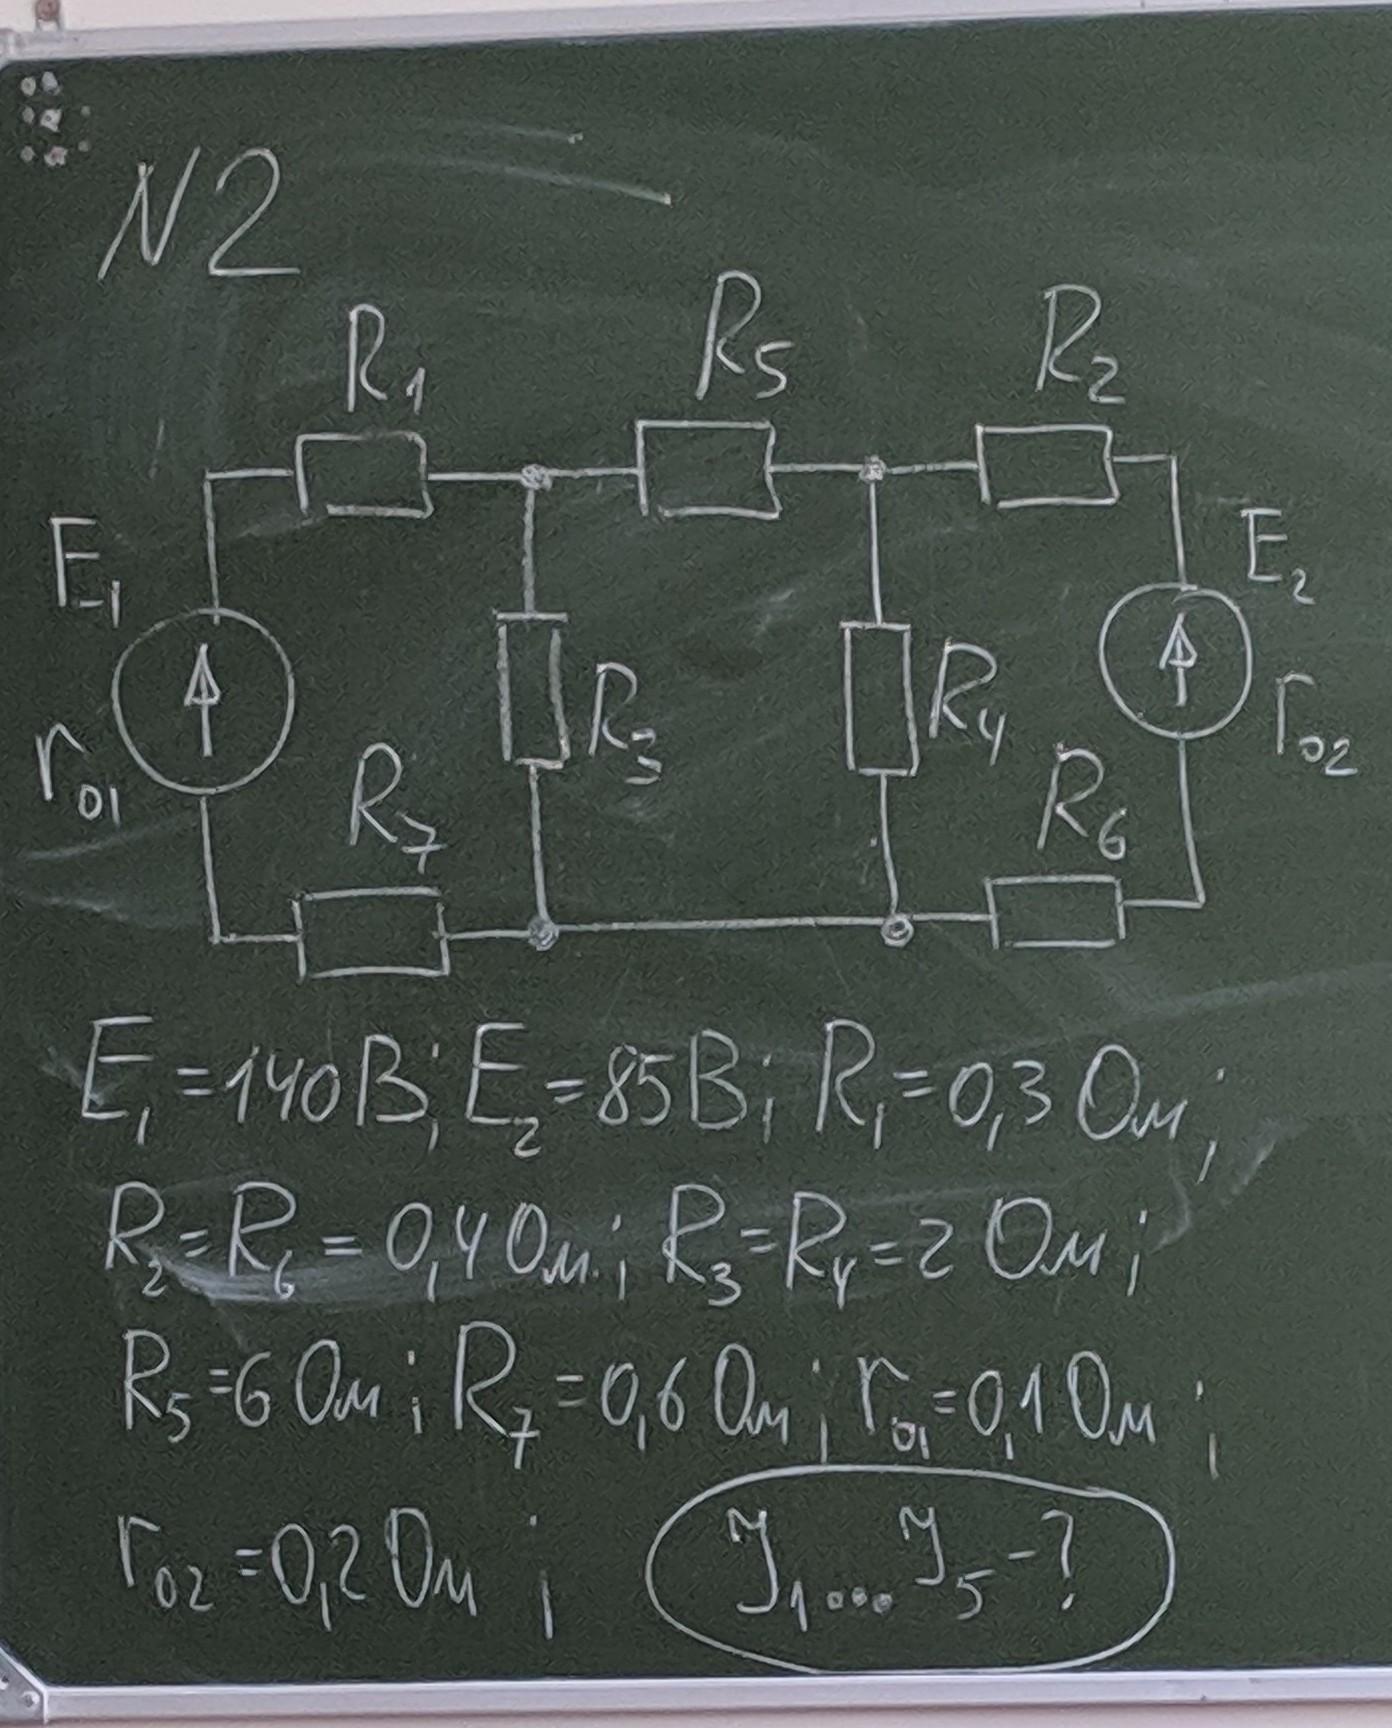 N2
R₁ R₅ R₂
E₁ E₂
r₀₁ R₃ R₄ r₀₂
R₇ R₆
E₁=140В; E₂=85В; R₁=0,3 Ом;
R₂=R₆=0,4 Ом; R₃=R₄=2 Ом;
R₅=6 Ом; R₇=0,6 Ом; r₀₁=0,1 Ом;
r₀₂=0,2 Ом; J₁...J₅-?